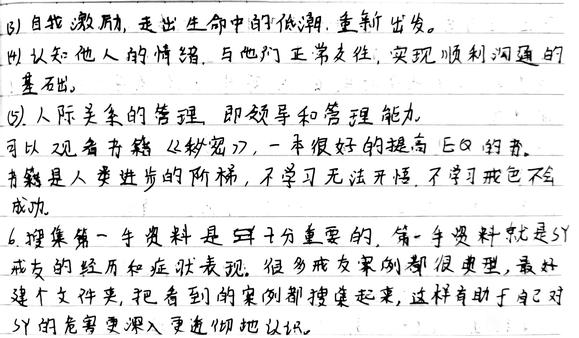 (3) 自我激励, 走出生命中的低潮, 重新出发。
(4) 认知他人的情绪. 与他们正常交往, 实现顺利沟通的
基石出。
(5). 人际关系的管理 即领导和管理能力
可以观看书籍《秘密》, 一本很好的提高 EQ 的书。
书籍是人类进步的阶梯, 不学习无法开悟, 不学习戒色不会
成功。
6. 搜集第一手资料是十分重要的, 第一手资料就是SY
戒友的经历和症状表现。很多戒友案例都很典型, 最好
建个文件夹, 把看到的案例都搜集起来, 这样有助于自己对
SY 的危害更深入更透彻地认识。